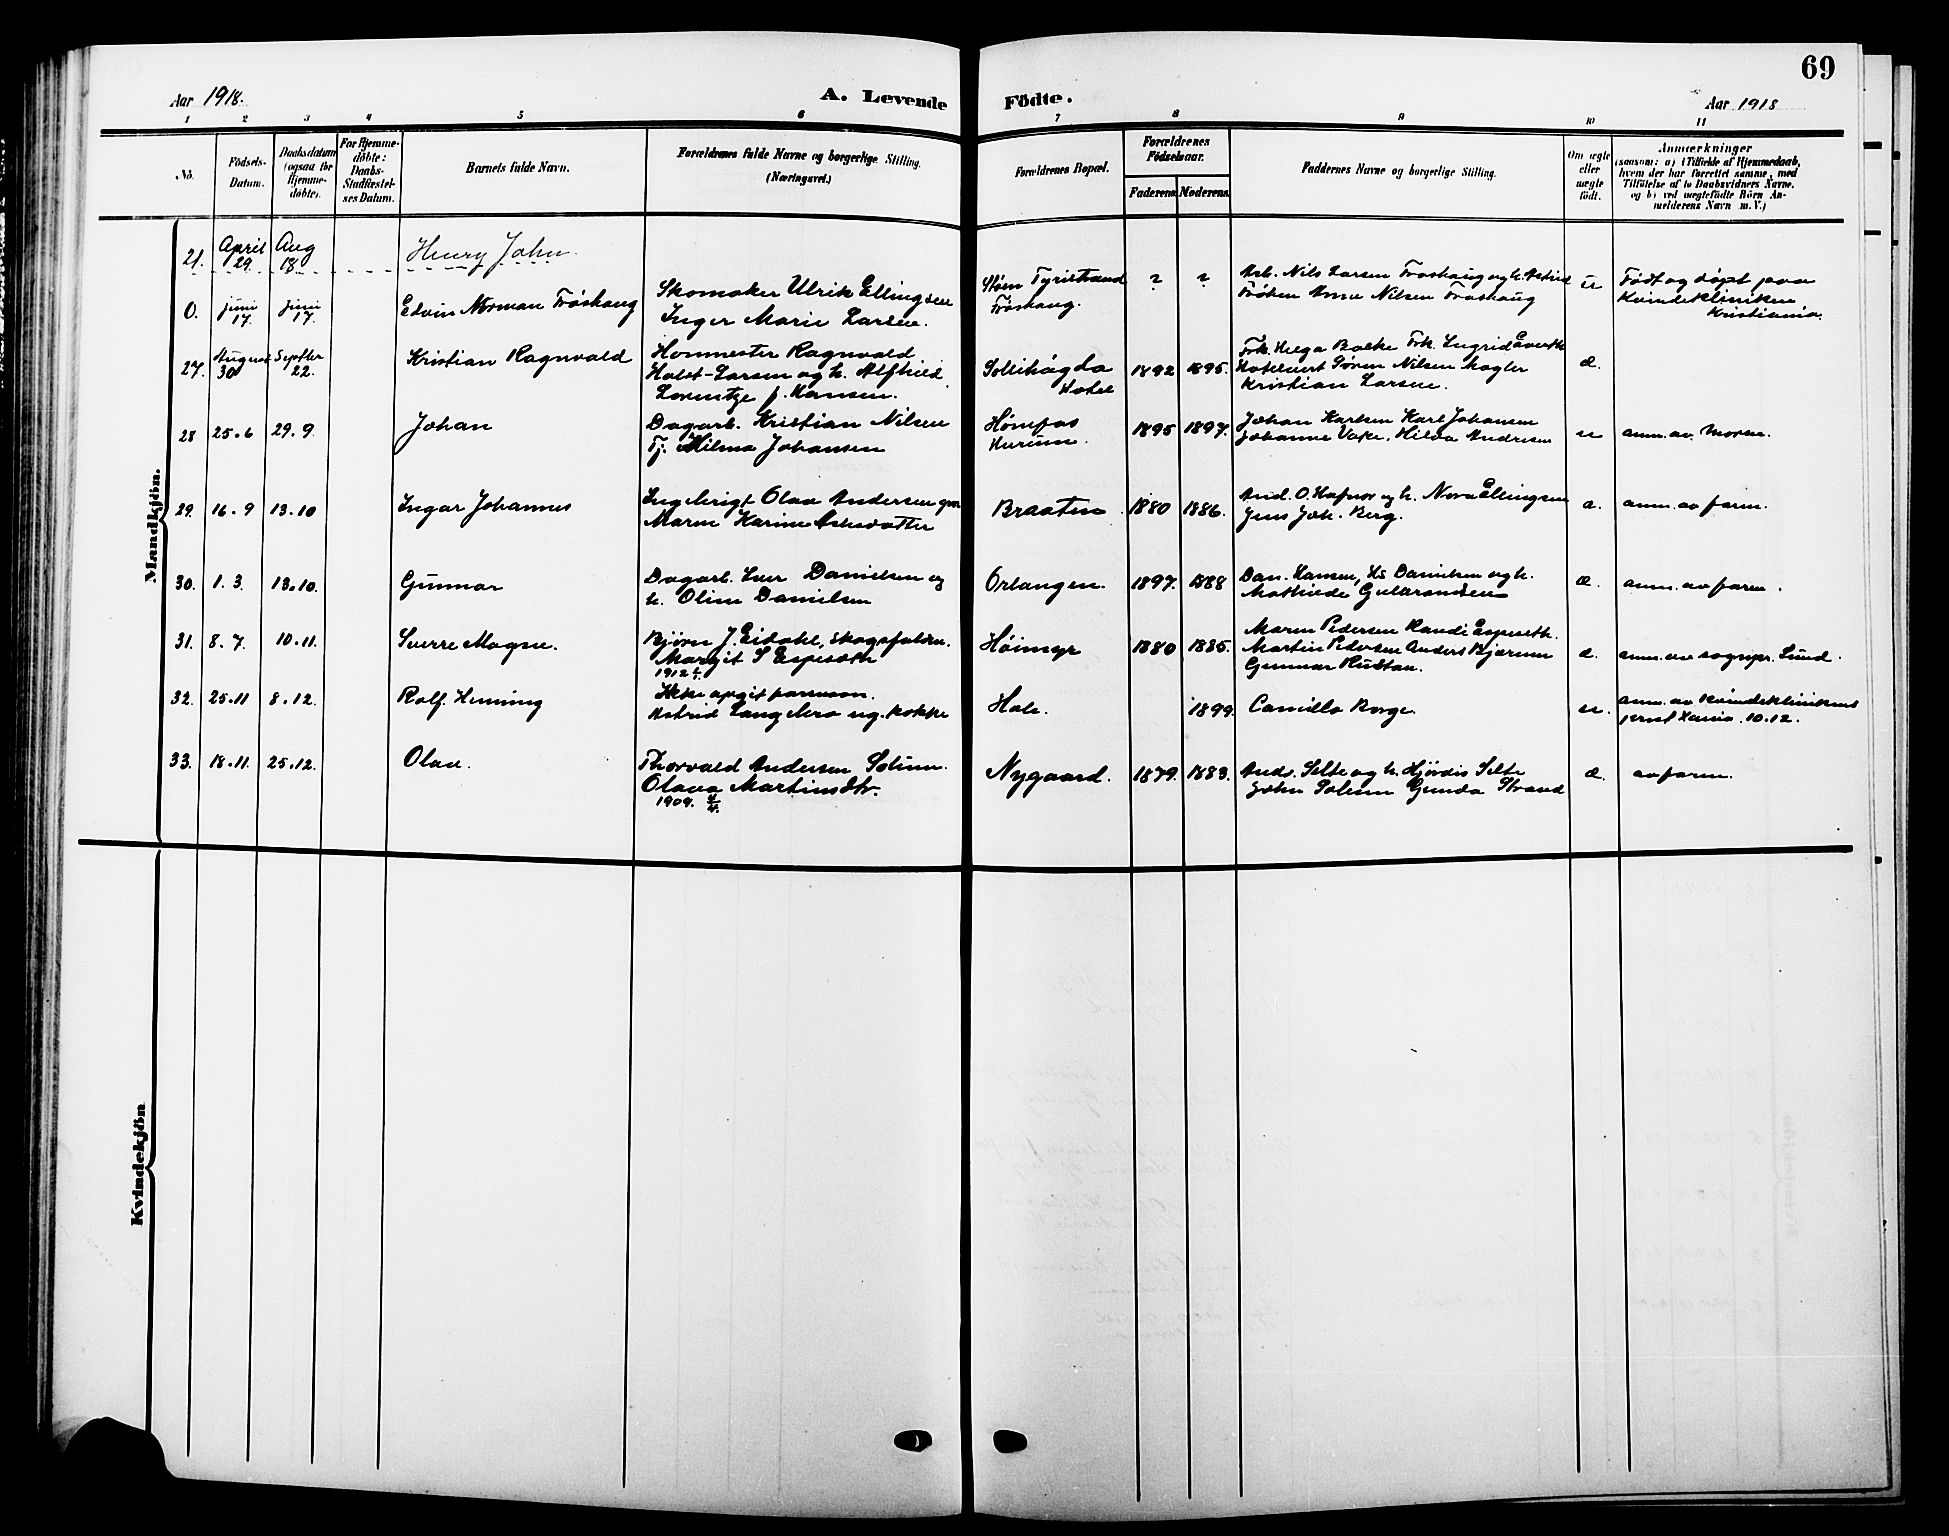 69
Aar 1918.
A. Levende Födte.
Aar 1918
1 2 3 4 5 6 7 8 9 10 11
No.
Födsels-
Datum.
Daabsdatum
(ogsaa for
Hjemme-
døbte).
For Hjemme-
døbte:
Daabs-
Stadfæstel-
ses Datum.
Barnets fulde Navn.
Forældrenes fulde Navne og borgerlige Stilling.
(Næringsvei.)
Forældrenes Bopæl.
Forældrenes
Födselsaar.
Faderens.
Moderens.
Faddernes Navne og borgerlige Stilling.
Om ægte
eller
uægte
födt.
Anmærkninger
(saasom: a) i Tilfælde af Hjemmedaab,
hvem der har forrettet samme, med
Tilføielse af to Daabsvidners Navne,
og b) ved uægtefødte Börn An-
melderens Navn m. V.)
Mandkjön.
21. April 29. Aug 18 Henry John.
0. juni 17. juni 17. Edvin Norman Frøshaug
Skomaker Ulrik Ellingsen
Inger Marie Larsen.
Støen Tyristrand
Frøshaug.
? ?
Arb. Nils Larsen Frøshaug og h. Astrid
Frøken Anna Nilsen Frøshaug
u
Født og døpt paa
Kvindekliniken,
Kristiania.
27. August 30 Septber 22. Kristian Ragnvald
Hovmester Ragnvald
Holst-Larsen og h. Alfhild
Lorentze f. Hansen.
Sollihøgda
Hotel
1892 1895.
Frk. Helga Bakke Frk. Ingrid
Hotelvert Søren Nilsen Magler
Kristian Larsen.
æ.
28 25.6 29.9. Johan
Dagarb. Kristian Nilsen
Tj. Milma Johansen
Hønefos
Hurum.
1895 1897.
Johan Karlsen Karl Johansen
Johanne Hilda Andresen
u
anm. av moren.
29. 16.9 13.10 Ingar Johannes
Ingebrigt Olav Andersen
Maren Karine
Braaten
1880 1886.
And. O. Hafnor og h. Nora Ellingsen
Jens Joh. Berg.
æ.
anm. av faren.
30. 1.3. 13.10. Gunnar
Dagarb. Iver Danielsen og
h. Oline Danielsen
Orlangen.
1897. 1888
Dan. Hansen, Hs Danielsen og h.
Mathilde Gulbrandsen
æ.
anm. av faren.
31. 8.7. 10.11. Sverre Magne.
Bjørn J. Eidahl, skogsfuldm.
Margit S Espeseth
1912
Høimyr
1880 1885.
Maren Pedersen Randi Espeseth.
Martin Pedersen Anders Bjærum
Gunnar Rustan.
æ.
anm. av sognepr. Lund.
32. 25.11 8.12. Rolf Henning
Ikke opgit farnavn.
Astrid Langebro ug. kokke
Hole.
1899.
Camilla Borge
u.
anm. av Kvindeklinikens
10.12.
33. 18.11. 25.12. Olav.
Thorvald Andersen Solum.
Olava Martinsdtr.
1909.
Nygaard.
1879. 1883.
Ands. Selte og h. Hjørdis Selte
John Solum Gunda Strand
æ.
av faren.
Kvindekjön